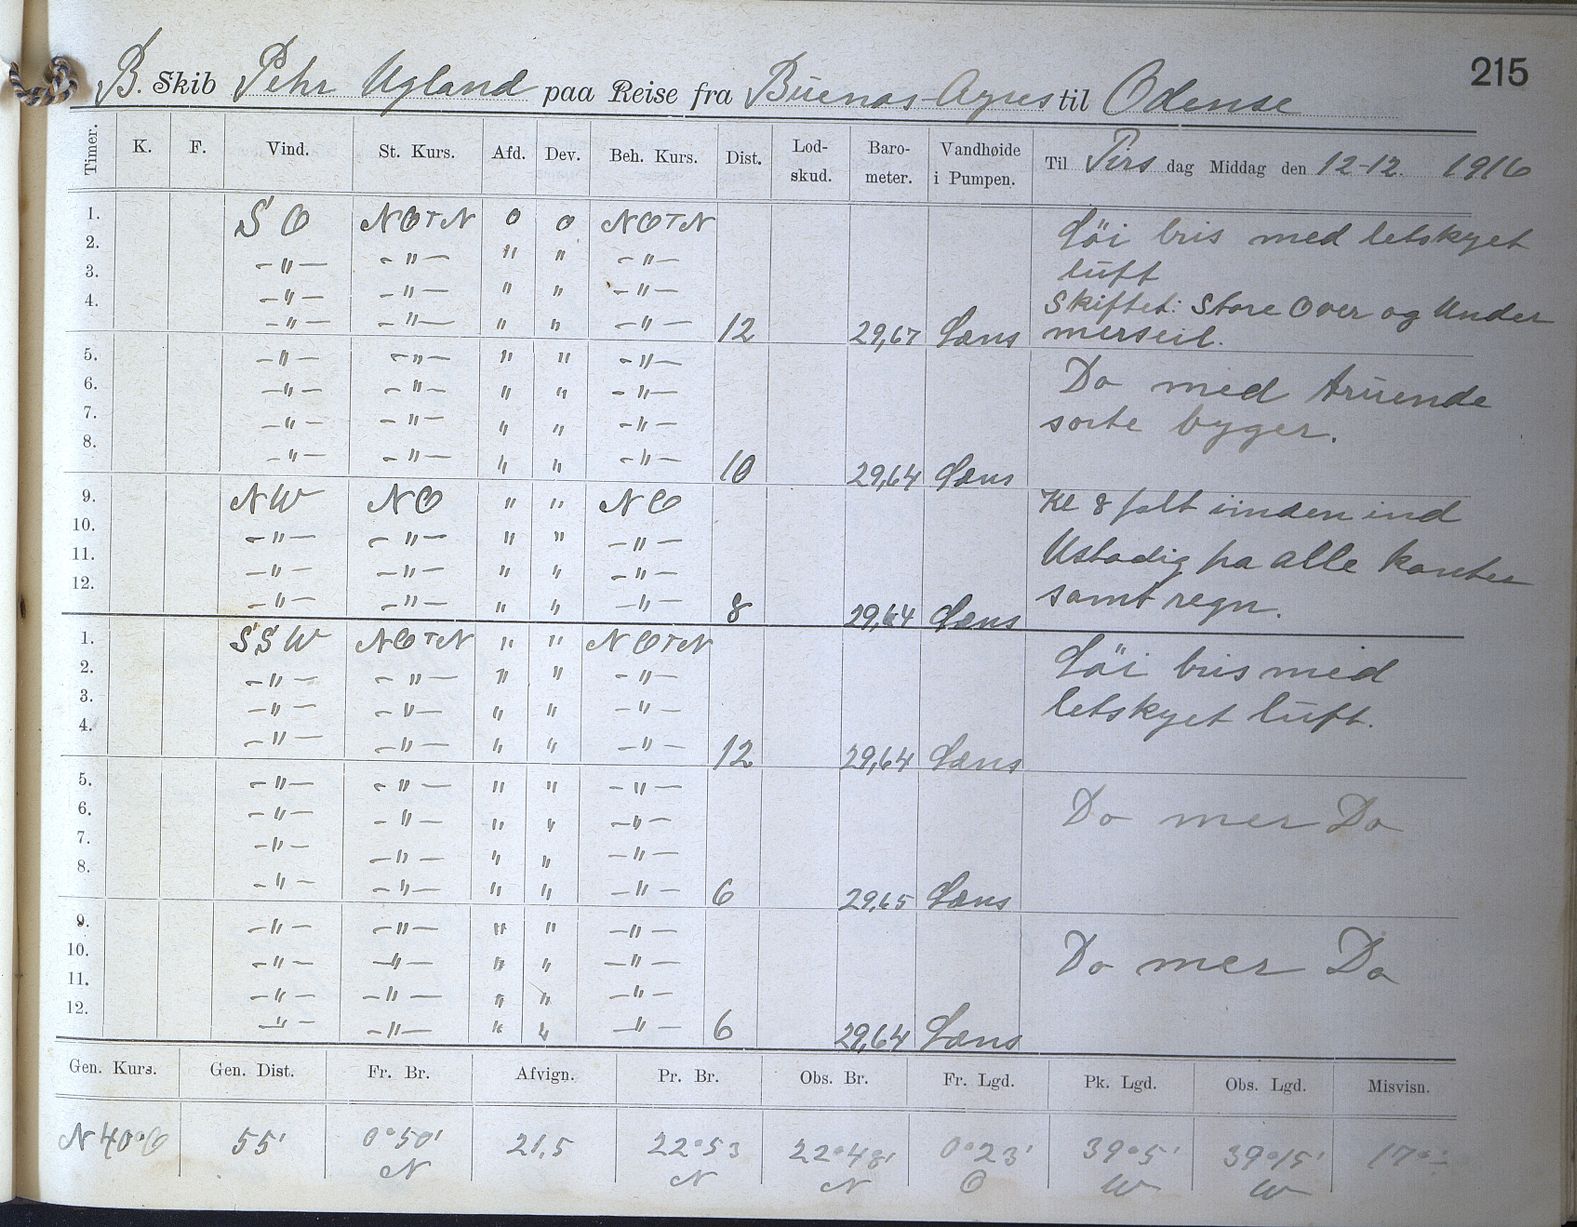 215
B. Skib Pehr Ugland paa Reise fra Buenos-Ayres til Odense
Timer. K. F. Vind. St. Kurs. Afd. Dev. Beh. Kurs. Dist. Lod-skud. Baro-meter. Vandhøide i Pumpen. Til Tirs dag Middag den 12-12. 1916
1. SO NOTN O O NOTN Löi bris med letskyet
2. -"- -"- " " -"- luft
3. -"- -"- " " -"- Skiftet: Store Over og Under
4. -"- -"- " " -"- 12 29,67 Læns merseil.
5. -"- -"- " " -"- Do med truende
6. -"- -"- " " -"- sorte byger.
7. -"- -"- " " -"-
8. -"- -"- " " -"- 10 29,64 Læns
9. NW NO " " NO Kl 8 falt vinden ind
10. -"- -"- " " -"- Ustadig pa alle kanter
11. -"- -"- " " -"- samt regn.
12. -"- -"- " " -"- 8 29,64 Læns
1. SSW NOTN " " NOTN Löi bris med
2. -"- -"- " " -"- letskyet luft.
3. -"- -"- " " -"-
4. -"- -"- " " -"- 12 29,64 Læns
5. -"- -"- " " -"- Do mer Do
6. -"- -"- " " -"-
7. -"- -"- " " -"-
8. -"- -"- " " -"- 6 29,65 Læns
9. -"- -"- " " -"- Do mer Do
10. -"- -"- " " -"-
11. -"- -"- " " -"-
12. -"- -"- " " -"- 6 29,64 Læns
Gen. Kurs. Gen. Dist. Fr. Br. Afvign. Pr. Br. Obs. Br. Fr. Lgd. Pk. Lgd. Obs. Lgd. Misvisn.
N 40° O 55' 0°50' 21,5 22°53 22°48' 0°23' 39°5' 39°15' 17°
N N N O W W